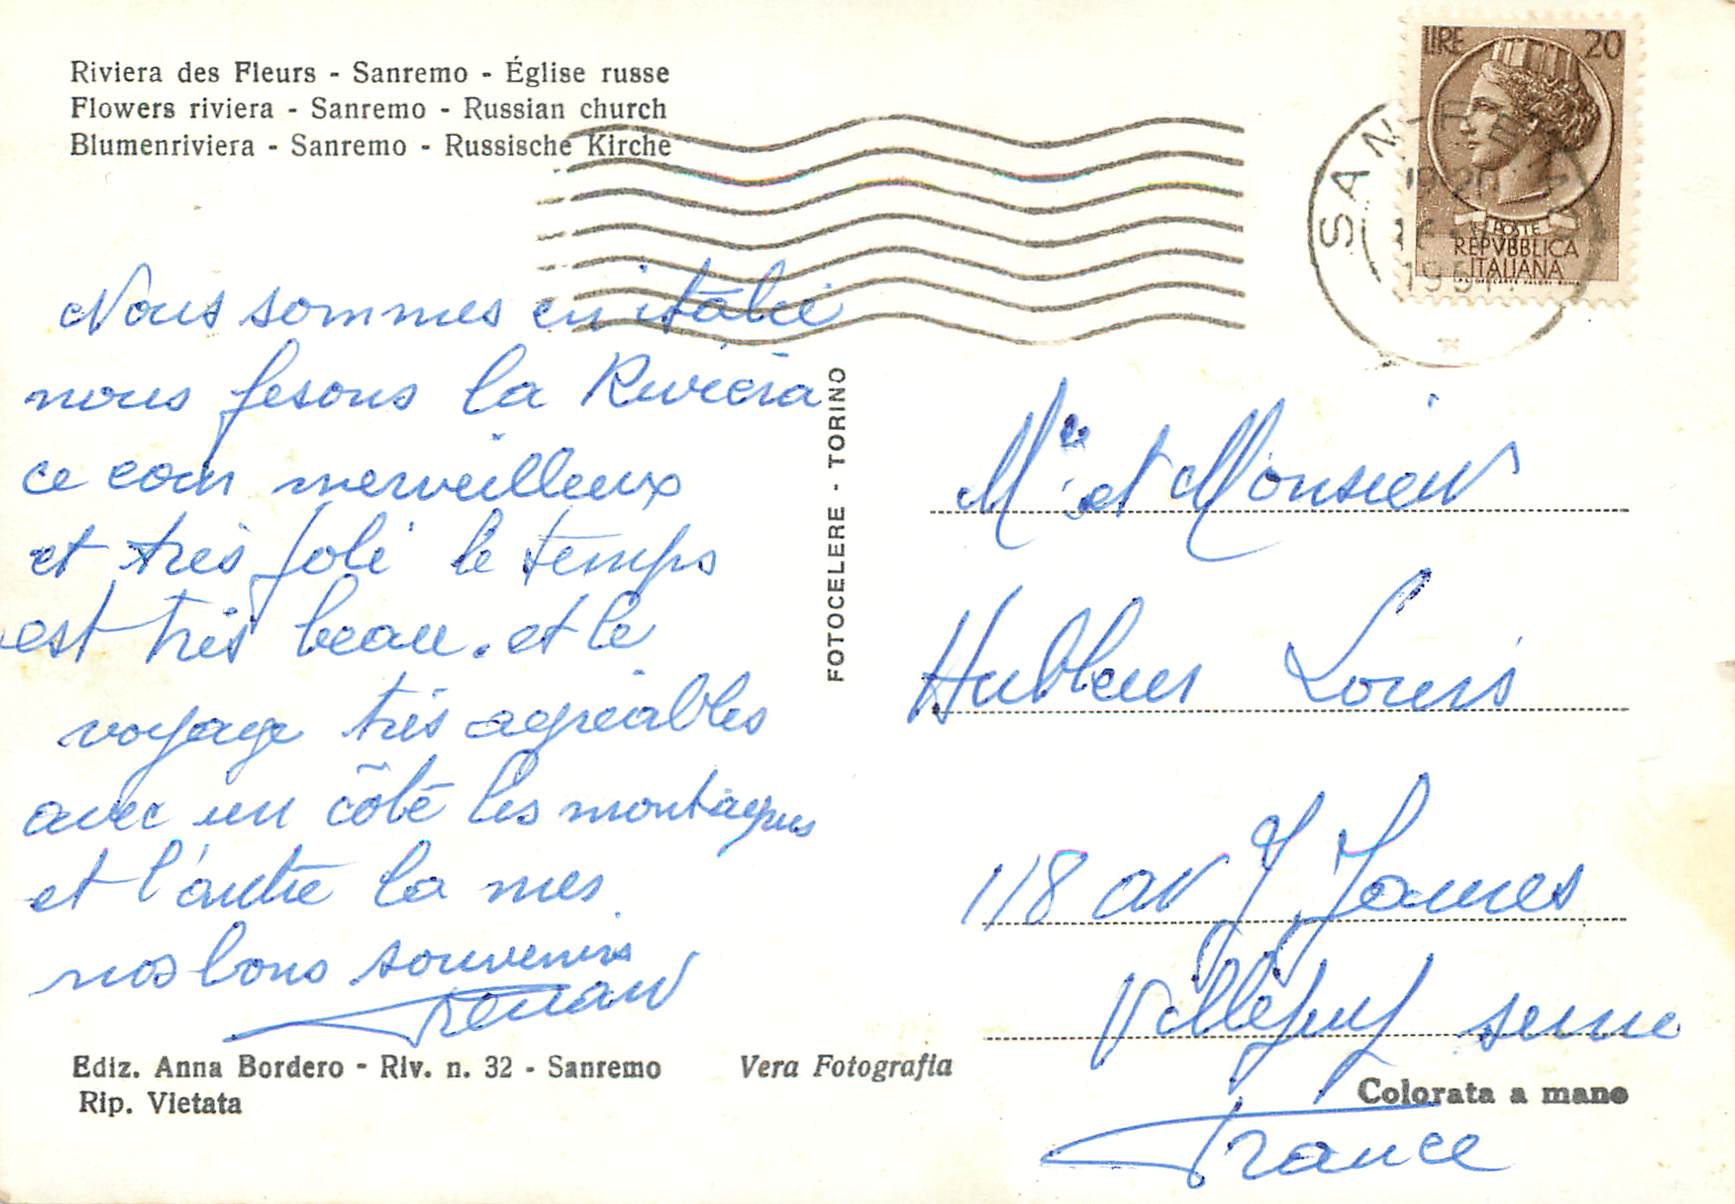 Riviera des Fleurs - Sanremo - Église russe
Flowers riviera - Sanremo - Russian church
Blumenriviera - Sanremo - Russische Kirche
LIRE 20
POSTE
REPVBBLICA
ITALIANA
SANREMO
Nous sommes en italie
nous fesons la Riviera
ce coin merveilleux
et très joli le temps
est très beau. et le
voyage très agréables
avec un côté les montagnes
et l'autre la mer
nos bons souvenirs
FOTOCELERE - TORINO
Mme et Monsieur
Louis
118 av J James
Villejuif seine
France
Ediz. Anna Bordero - Riv. n. 32 - Sanremo
Rip. Vietata
Vera Fotografia
Colorata a mano